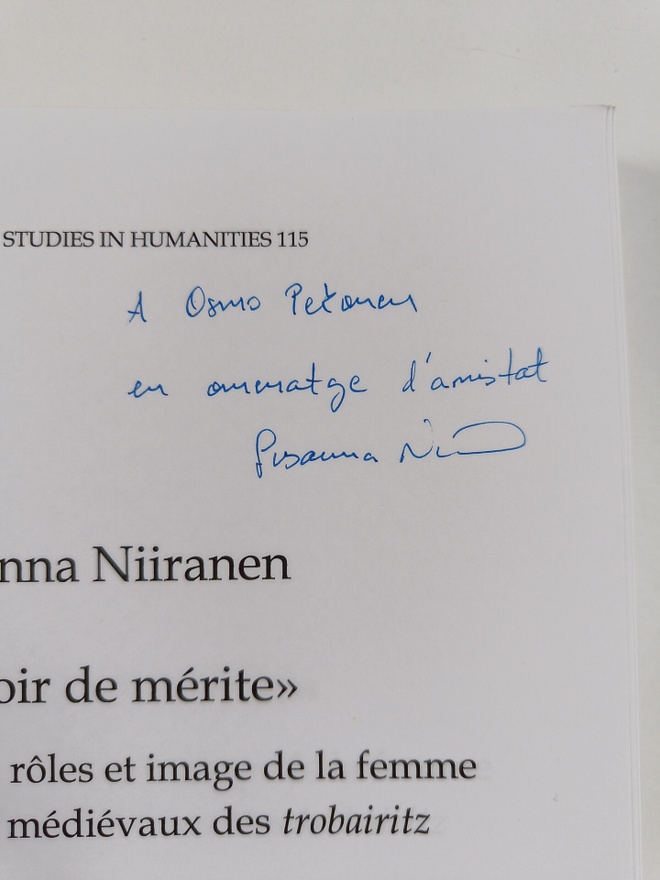 STUDIES IN HUMANITIES 115
A Osmo Pekonen
en omenatge d'amistat
Susanna Nii
nna Niiranen
oir de mérite»
rôles et image de la femme
médiévaux des trobairitz